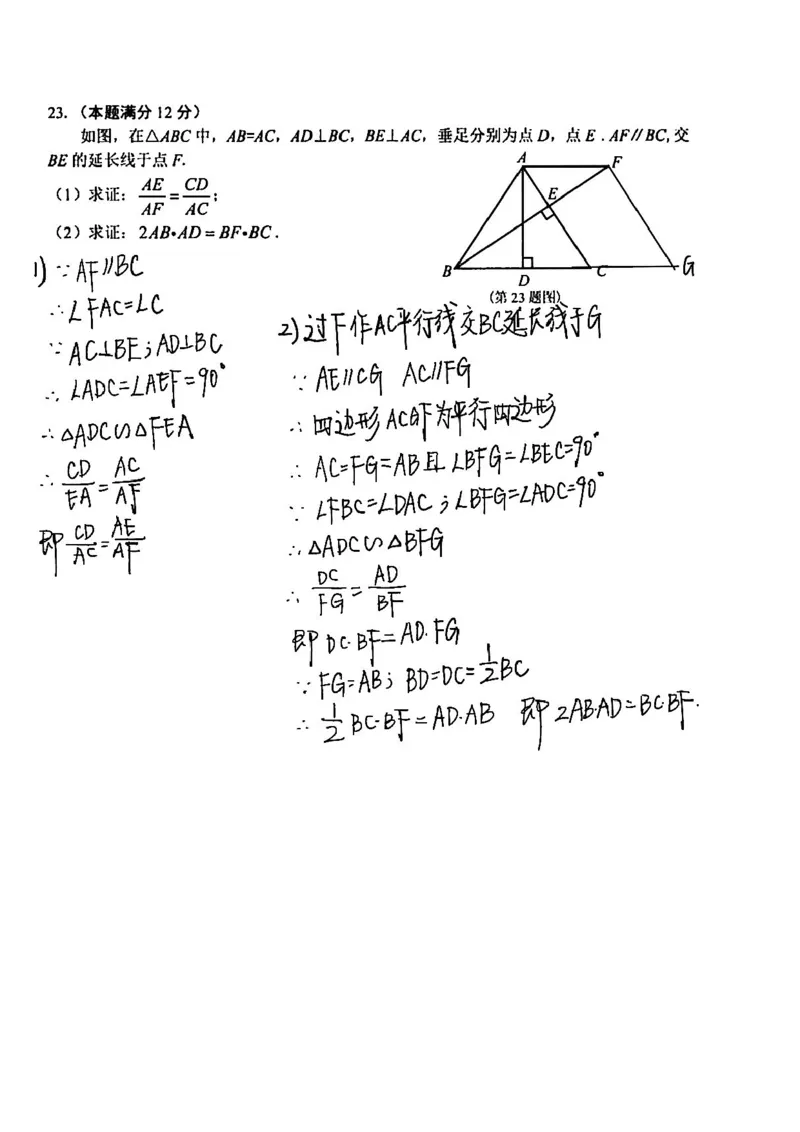 23.（本题满分 12 分）
如图，在△ABC 中，AB=AC，AD⊥BC，BE⊥AC，垂足分别为点 D，点 E．AF∥BC，交
BE 的延长线于点 F.
（1）求证：AE/AF=CD/AC；
（2）求证：2AB•AD=BF•BC．
A
F
E
B
D
C
G
（第 23 题图）
1) ∵AF∥BC
∴∠FAC=∠C
∵AC⊥BE；AD⊥BC
∴∠ADC=∠AEF=90°
∴△ADC∽△FEA
∴CD/EA=AC/AF
即CD/AC=AE/AF
2)过F作AC平行线交BC延长线于G
∵AE∥CG AC∥FG
∴四边形ACGF为平行四边形
∴AC=FG=AB且∠BFG=∠BEC=90°
∵∠FBC=∠DAC；∠BFG=∠ADC=90°
∴△ADC∽△BFG
∴DC/FG=AD/BF
即DC·BF=AD·FG
∵FG=AB；BD=DC=1/2BC
∴1/2BC·BF=AD·AB 即2AB·AD=BC·BF.